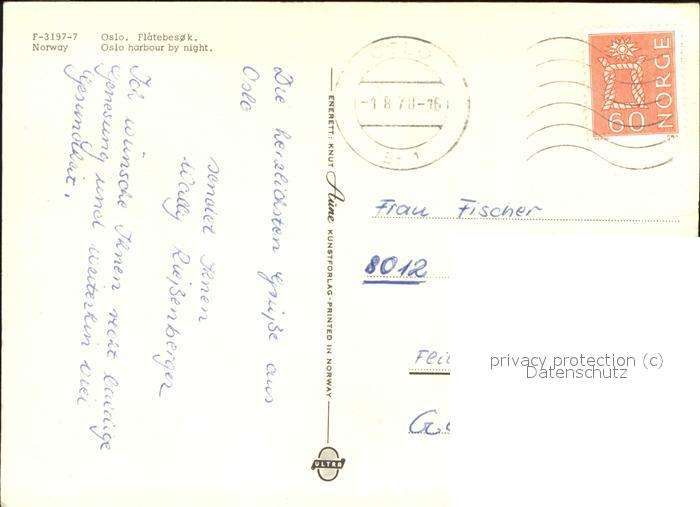 F-3197-7 Oslo. Flåtebesøk.
Norway Oslo harbour by night.
Die herzlichsten Grüße aus
Oslo
sendet Ihnen
Wally Reißenberger
Ich wünsche Ihnen recht baldige
Genesung und weiterhin viel
Gesundheit.
ENERETT: KNUT Aune KUNSTFORLAG · PRINTED IN NORWAY
ULTRA
NORGE
60
Frau Fischer
8012
privacy protection (c)
Datenschutz